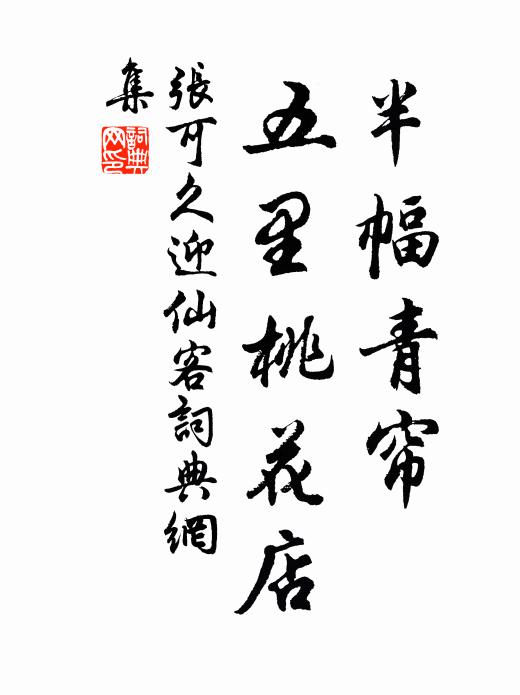 半幅青帘
五里桃花店
張可久迎仙客詞典網
集
詞典
网印